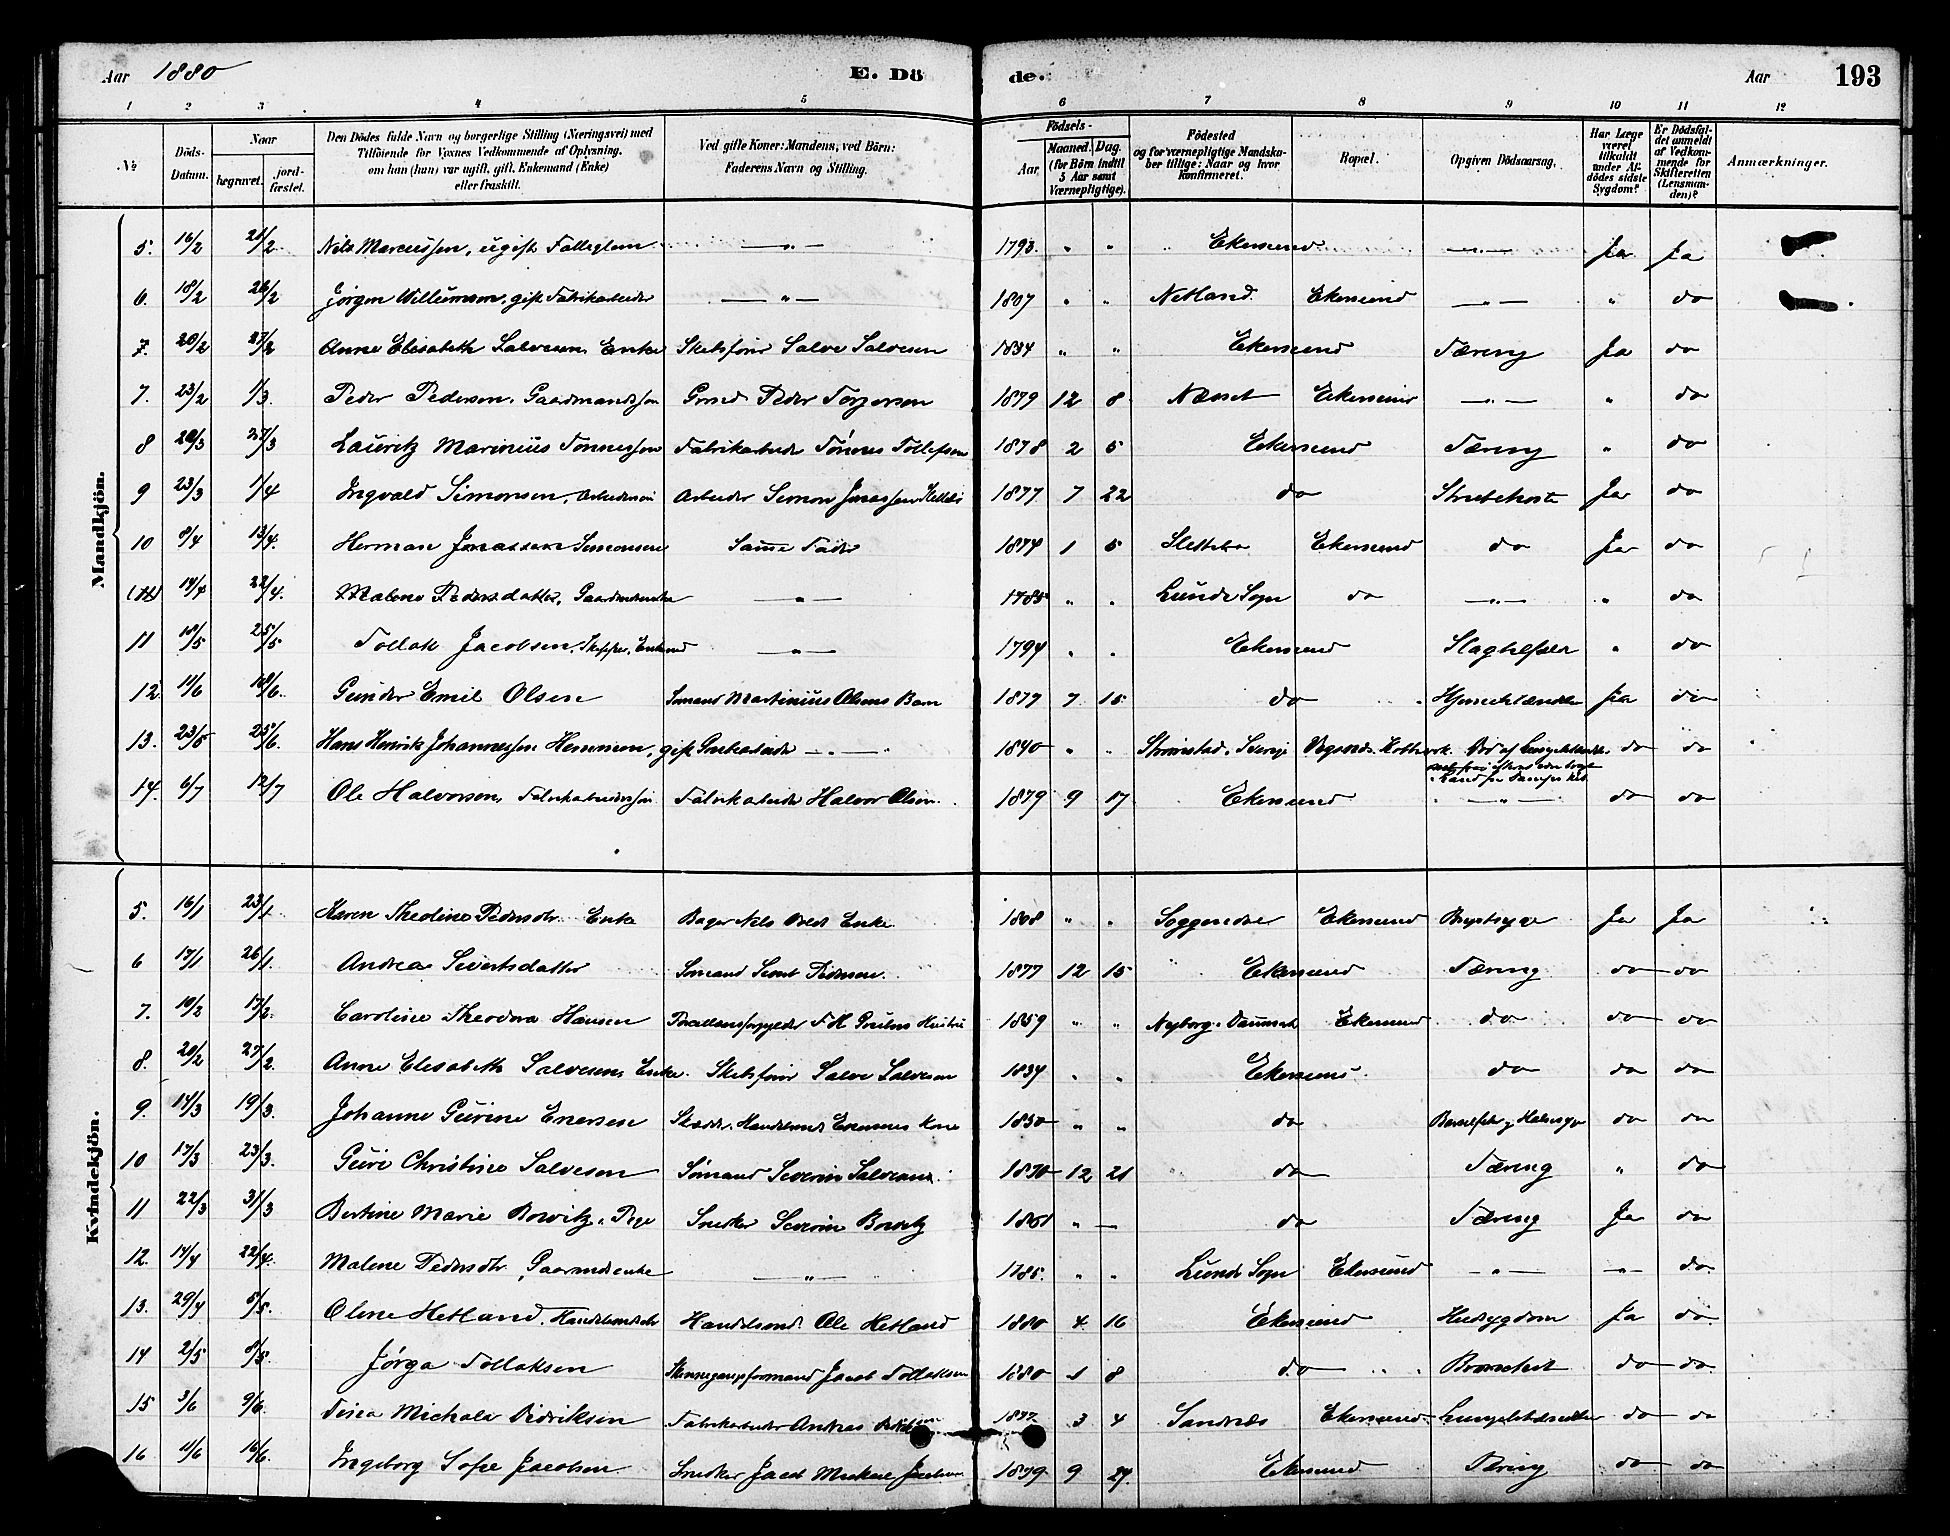 Aar 1880 E. Dö de. Aar 193
1 2 3 4 5 6 7 8 9 10 11 12
№ Döds-Datum. Naar begravet. jord-fæstet. Den Dödes fulde Navn og borgerlige Stilling (Næringsvei) med Tilföiende for Voxnes Vedkommende af Oplysning, om han (hun) var ugift, gift, Enkemand (Enke) eller fraskilt. Ved gifte Koner: Mandens, ved Börn: Faderens Navn og Stilling. Födsels- Aar Maaned. Dag. (for Börn indtil 3 Aar samt Værnepligtige). Födested og for værnepligtige Mandskaber tillige: Naar og hvor Konfirmeret. Bopæl. Opgiven Dödsaarsag. Har Læge været tilkaldt under Afdödes sidste Sygdom? Er Dödsfaldet anmeldt af Vedkommende for Skifteretten (Lensmanden)? Anmærkninger.
Mandkjön.
5. 16/2 21/2 Nils Marcussen, ugift Fattiglem — " — 1793. " " Ekersund — " — Ja Ja
6. 18/2 26/2 Jörgen Willumsen, gift Fabrikarbeider — " — 1807 " " Netland Ekersund — " — " do
7. 20/2 27/2 Anne Elisabeth Salvesen, Enke Skibsförer Salve Salvesen 1834 " " Ekersund Tæring Ja do
7. 23/2 1/3. Peder Pedersen, Gaardmandssön Grmd Peder Torjersen 1879 12 8 Næset Ekersund — " — " do
8 20/3 27/3 Lauritz Marinius Tönnessen Fabrikarbeider Tönnes Tollefsen 1878 2 5 Ekersund Tæring " do
9 23/3 1/4 Ingvald Simonsen, Arbeidersön Arbeider Simon Jonassen Slettebö 1877 7 22 do Strubehoste Ja do
10 8/4 13/4. Herman Jonassen Simonsen Samme Fader 1874 1 5 Slettebö Ekersund do Ja do
(11) 14/4 22/4. Malene Pedersdatter, Gaardmandsenke — " — 1785 " " Lunde Sogn do — " — " do
11 18/5 25/5 Tollak Jacobsen, Skipper, Enkemd — " — 1794 " " Ekersund Slagtilfælde " do
12 11/6 18/6. Gunder Emil Olsen Sömand Martinius Olsens Barn 1879 7 15 do Hjernebetændelse Ja do
13. 23/5 25/6. Hans Henrik Johannessen Hemmen, gift — " — 1840 " " Strömstad, Sverige do do
14. 6/7 12/7 Ole Halvorsen, Fabrikarbeidersön Fabrikarbeider Halvor Olsen 1879 9 17 Ekersund — " — do do
Kvindekjön.
5. 16/1 23/1. Karen Theoline Pedersdtr. Enke Bager Nels Enke 1808 " " Soggendal Ekersund Brystsyge Ja Ja
6 17/1 26/1. Andrea Sivertsdatter Sömand Sivert Pedersen 1877 12 15 Ekersund Tæring do do
7. 10/2 17/2. Caroline Theodora Hansen 1859 " " Nyborg, Danmark Ekersund do do do
8. 20/2 27/2. Anne Elisabeth Salvesen, Enke. Skibsförer Salve Salvesen 1834 " " Ekersund do do do
9. 14/3 19/3. Johanne Gurine Enersen Kone 1850 " " do do do
10 17/3 23/3. Guri Christine Salvesen Sömand Severin Salvesen 1870 12 21 do Tæring " do
11 22/3 31/3 Bertine Marie Bowitz, Pige Snedker Severin Bowitz 1861 " — do Tæring Ja do
12. 14/4 22/4. Malene Pedersdtr, Gaarmdsenke — " — 1785. " " Lunde Sogn Ekersund — " — — " — do.
13. 29/4 5/5. Oline Hetland, Handelsmdsdtr Handelsmd. Ole Hetland 1880 4 16 Ekersund Hudsygdom Ja do.
14 2/5 8/5. Jörga Tollaksen Jacob Tollaksen 1880 1 8 do Bronchit do do.
15 3/6 9/6. Michala Didriksen Fabrikarbeider Andreas 1877 3 4 Sandnæs Ekersund Lungebetændelse do do
16 11/6 16/6. Ingeborg Sofie Jacobsen Snedker Jacob 1879 9 27. Ekersund Tæring do do